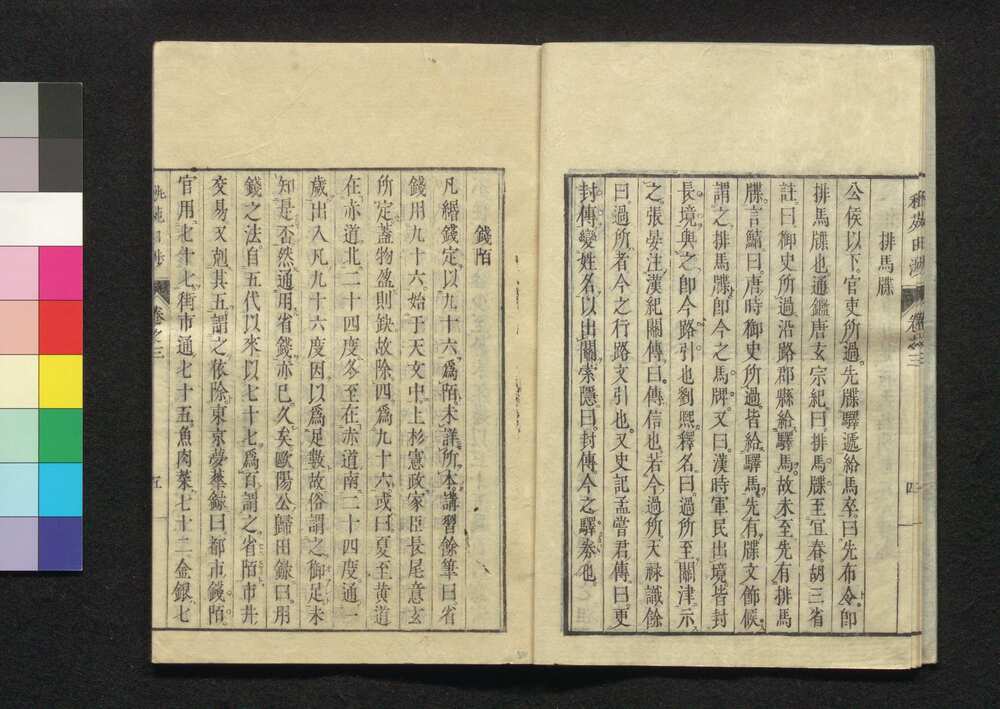 排馬牒
公侯以下官吏所過先牒驛遞給馬卒曰先布令即
排馬牒也通鑑唐玄宗紀曰排馬牒至宜春胡三省
註曰御史所過沿路郡縣給驛馬故未至先有排馬
牒言鯖曰唐時御史所過皆給驛馬先有牒文飾候
謂之排馬牒即今之馬牌又曰漢時軍民出境皆封
長境與之即今路引也劉熙釋名曰過所至關津示
之張晏注漢紀關傳曰傳信也若今過所天祿識餘
曰過所者今之行路文引也又史記孟嘗君傳曰更
封傳變姓名以出關索隱曰封傳今之驛券也
卷之三
四
錢陌
凡緡錢定以九十六爲陌未詳所本講習餘筆曰省
錢用九十六始于天文中上杉憲政家臣長尾意玄
所定蓋物盈則缺故除四爲九十六或曰夏至黄道
在赤道北二十四度冬至在赤道南二十四度通一
歲出入凡九十六度因以爲足數故俗謂之御足未
知是否然通用省錢亦已久矣歐陽公歸田錄曰用
錢之法自五代以來以七十七爲百謂之省陌市井
交易又剋其五謂之依除東京夢華錄曰都市錢陌
官用七十七街市通七十五魚肉菜七十二金銀七
卷之三
五